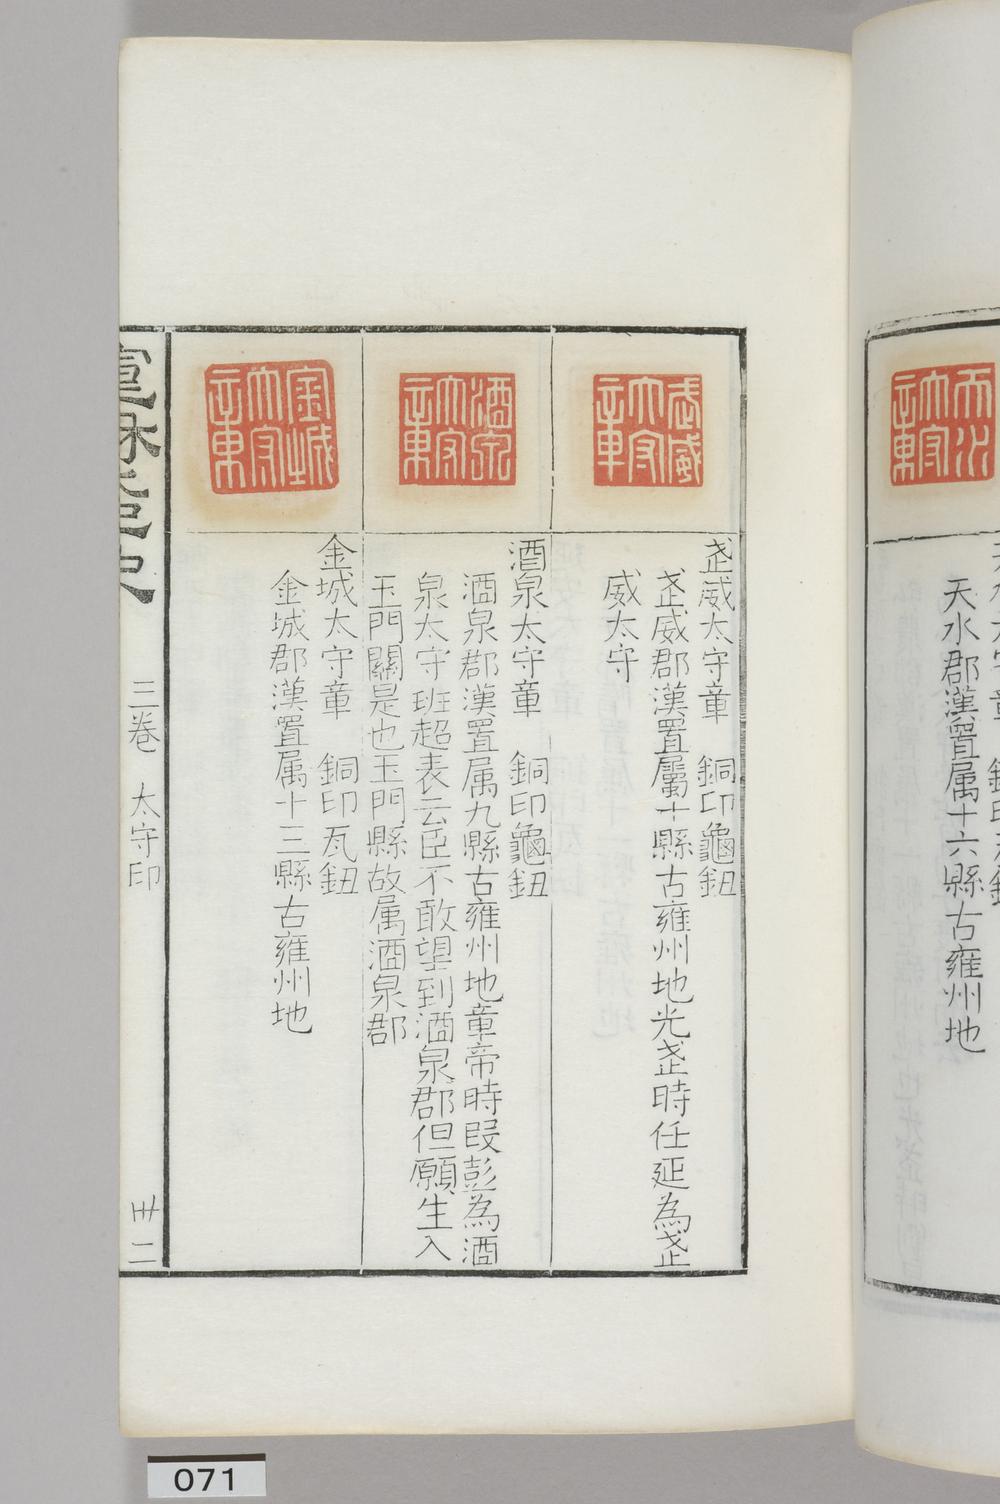 天水郡漢置属十六縣古雍州地
武威太守章
武威太守章　銅印龜鈕
武威郡漢置屬十縣古雍州地光武時任延為武
威太守
酒泉太守章
酒泉太守章　銅印龜鈕
酒泉郡漢置属九縣古雍州地章帝時段彭為酒
泉太守班超表云臣不敢望到酒泉郡但願生入
玉門關是也玉門縣故属酒泉郡
金城太守章
金城太守章　銅印瓦鈕
金城郡漢置属十三縣古雍州地
三巻　太守印　卅二
071